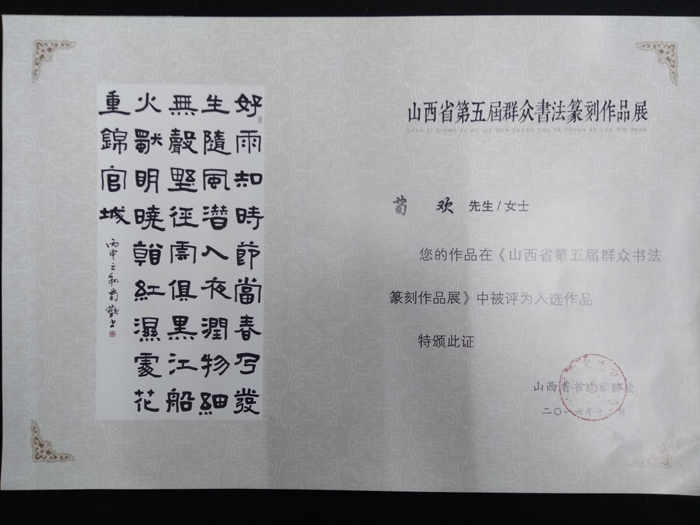 好雨知時節當春乃發
生隨風潛入夜潤物細
無聲野徑雲俱黑江船
火獨明曉看紅濕處花
重錦官城
丙申之秋荀歡书
山西省第五届群众書法篆刻作品展
SHAN XI SHENG DI WU JIE QUN ZHONG SHU FA ZHUAN KE ZUO PIN ZHAN
荀欢 先生/女士
您的作品在《山西省第五届群众书法
篆刻作品展》中被评为入选作品
特颁此证
山西省书法家协会
二〇一六年